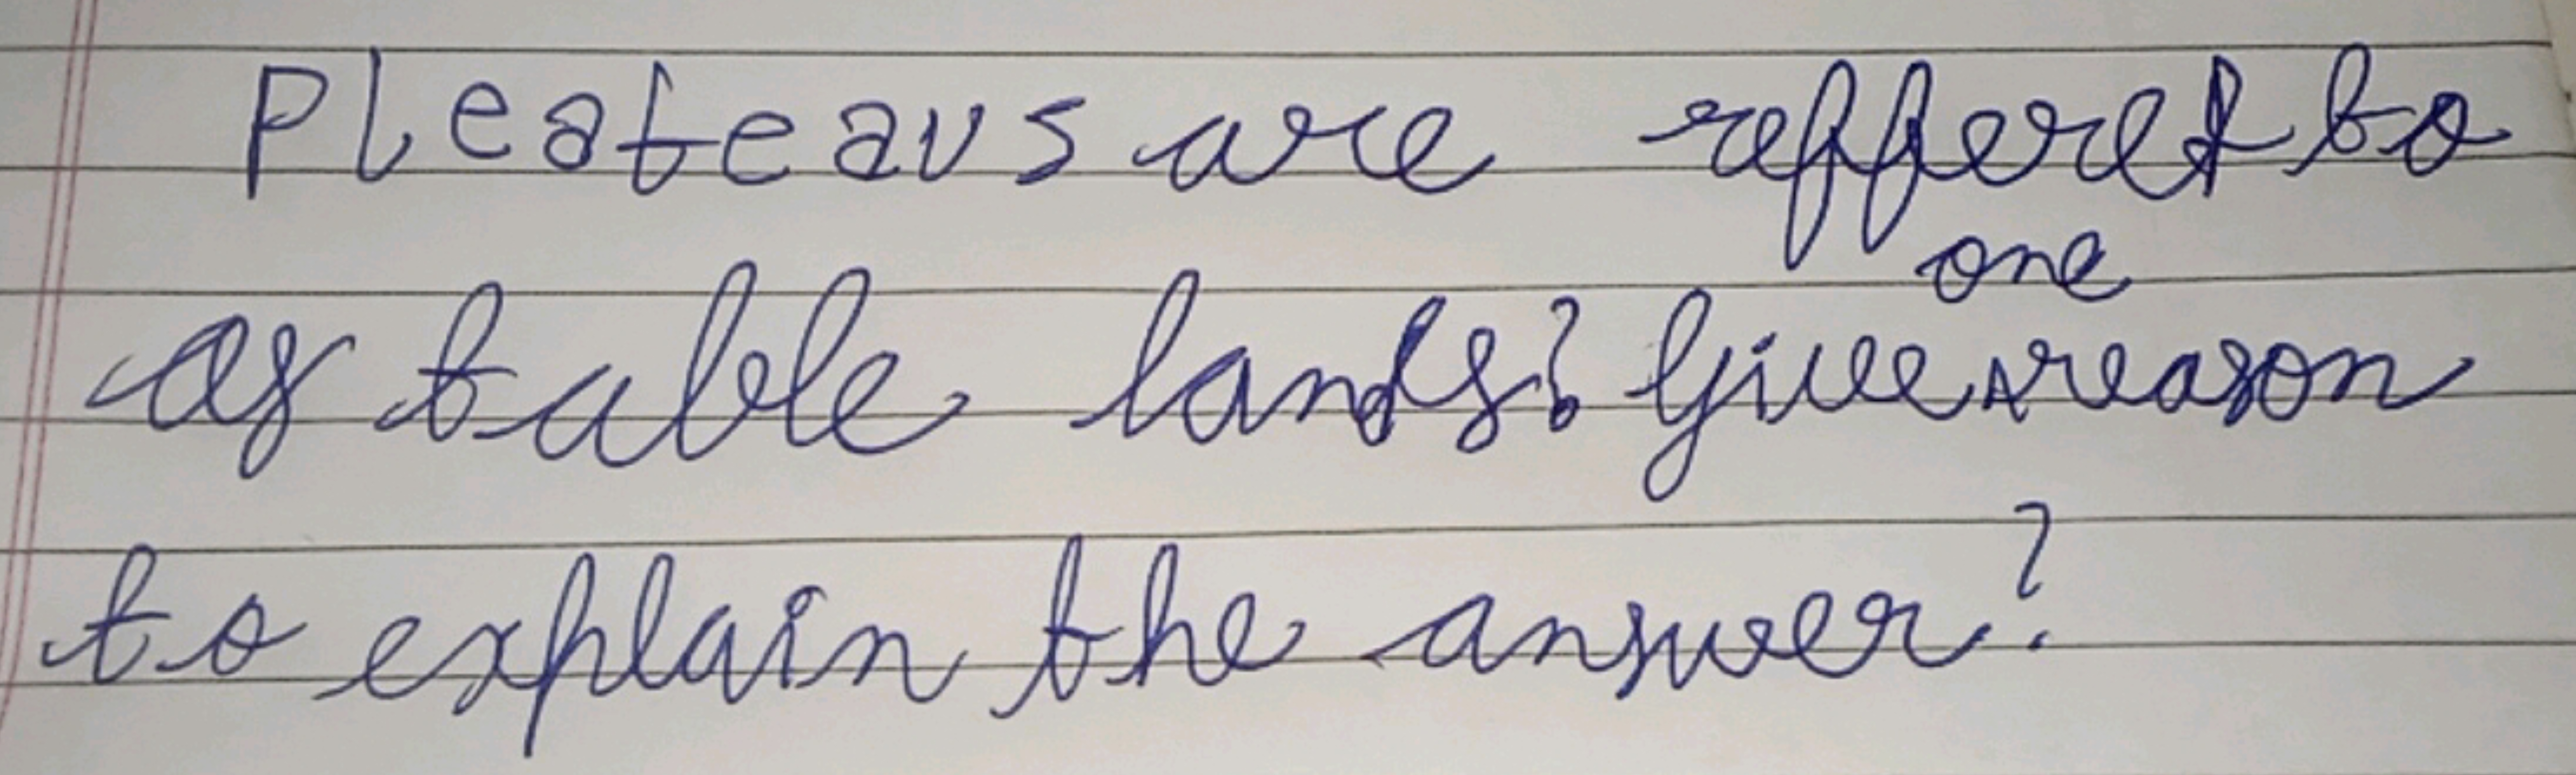 Pleateaus are reffered to
as table lands? Give one reason
to explain the answer?